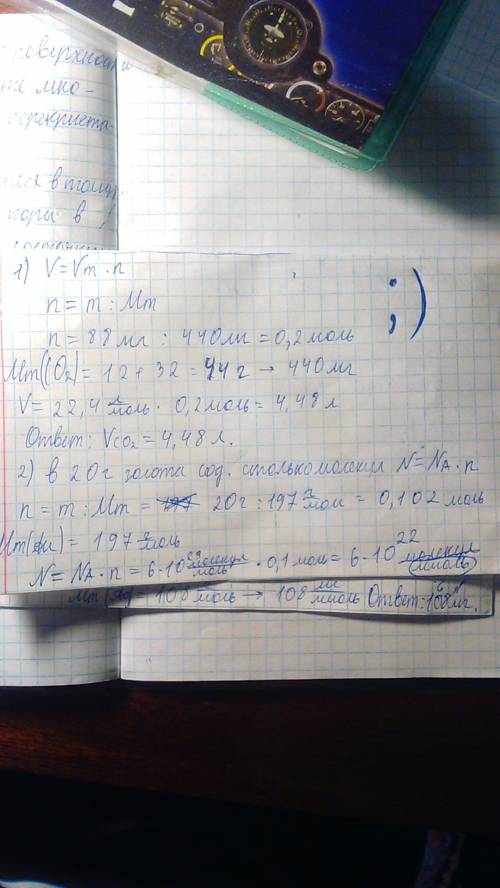 поверхност
мно-
в
1) V=Vm·n
n = m : Mm
n = 88мг : 440мг = 0,2моль ;)
Mm(CO2) = 12 + 32 = 44 г → 440мг
V= 22,4 л/моль · 0,2моль = 4,48 л
Ответ: Vco2 = 4,48 л.
2) в 20г золота сод. столько молекул N=NA·n
n = m : Mm = 20г : 197 г/моль = 0,102 моль
Mm(Au) = 197 г/моль
N = NA·n = 6·10^23 молекул/моль · 0,1 моль = 6·10^22 молекул
= 108 г/моль → 108 мг/ммоль Ответ: 108мг.